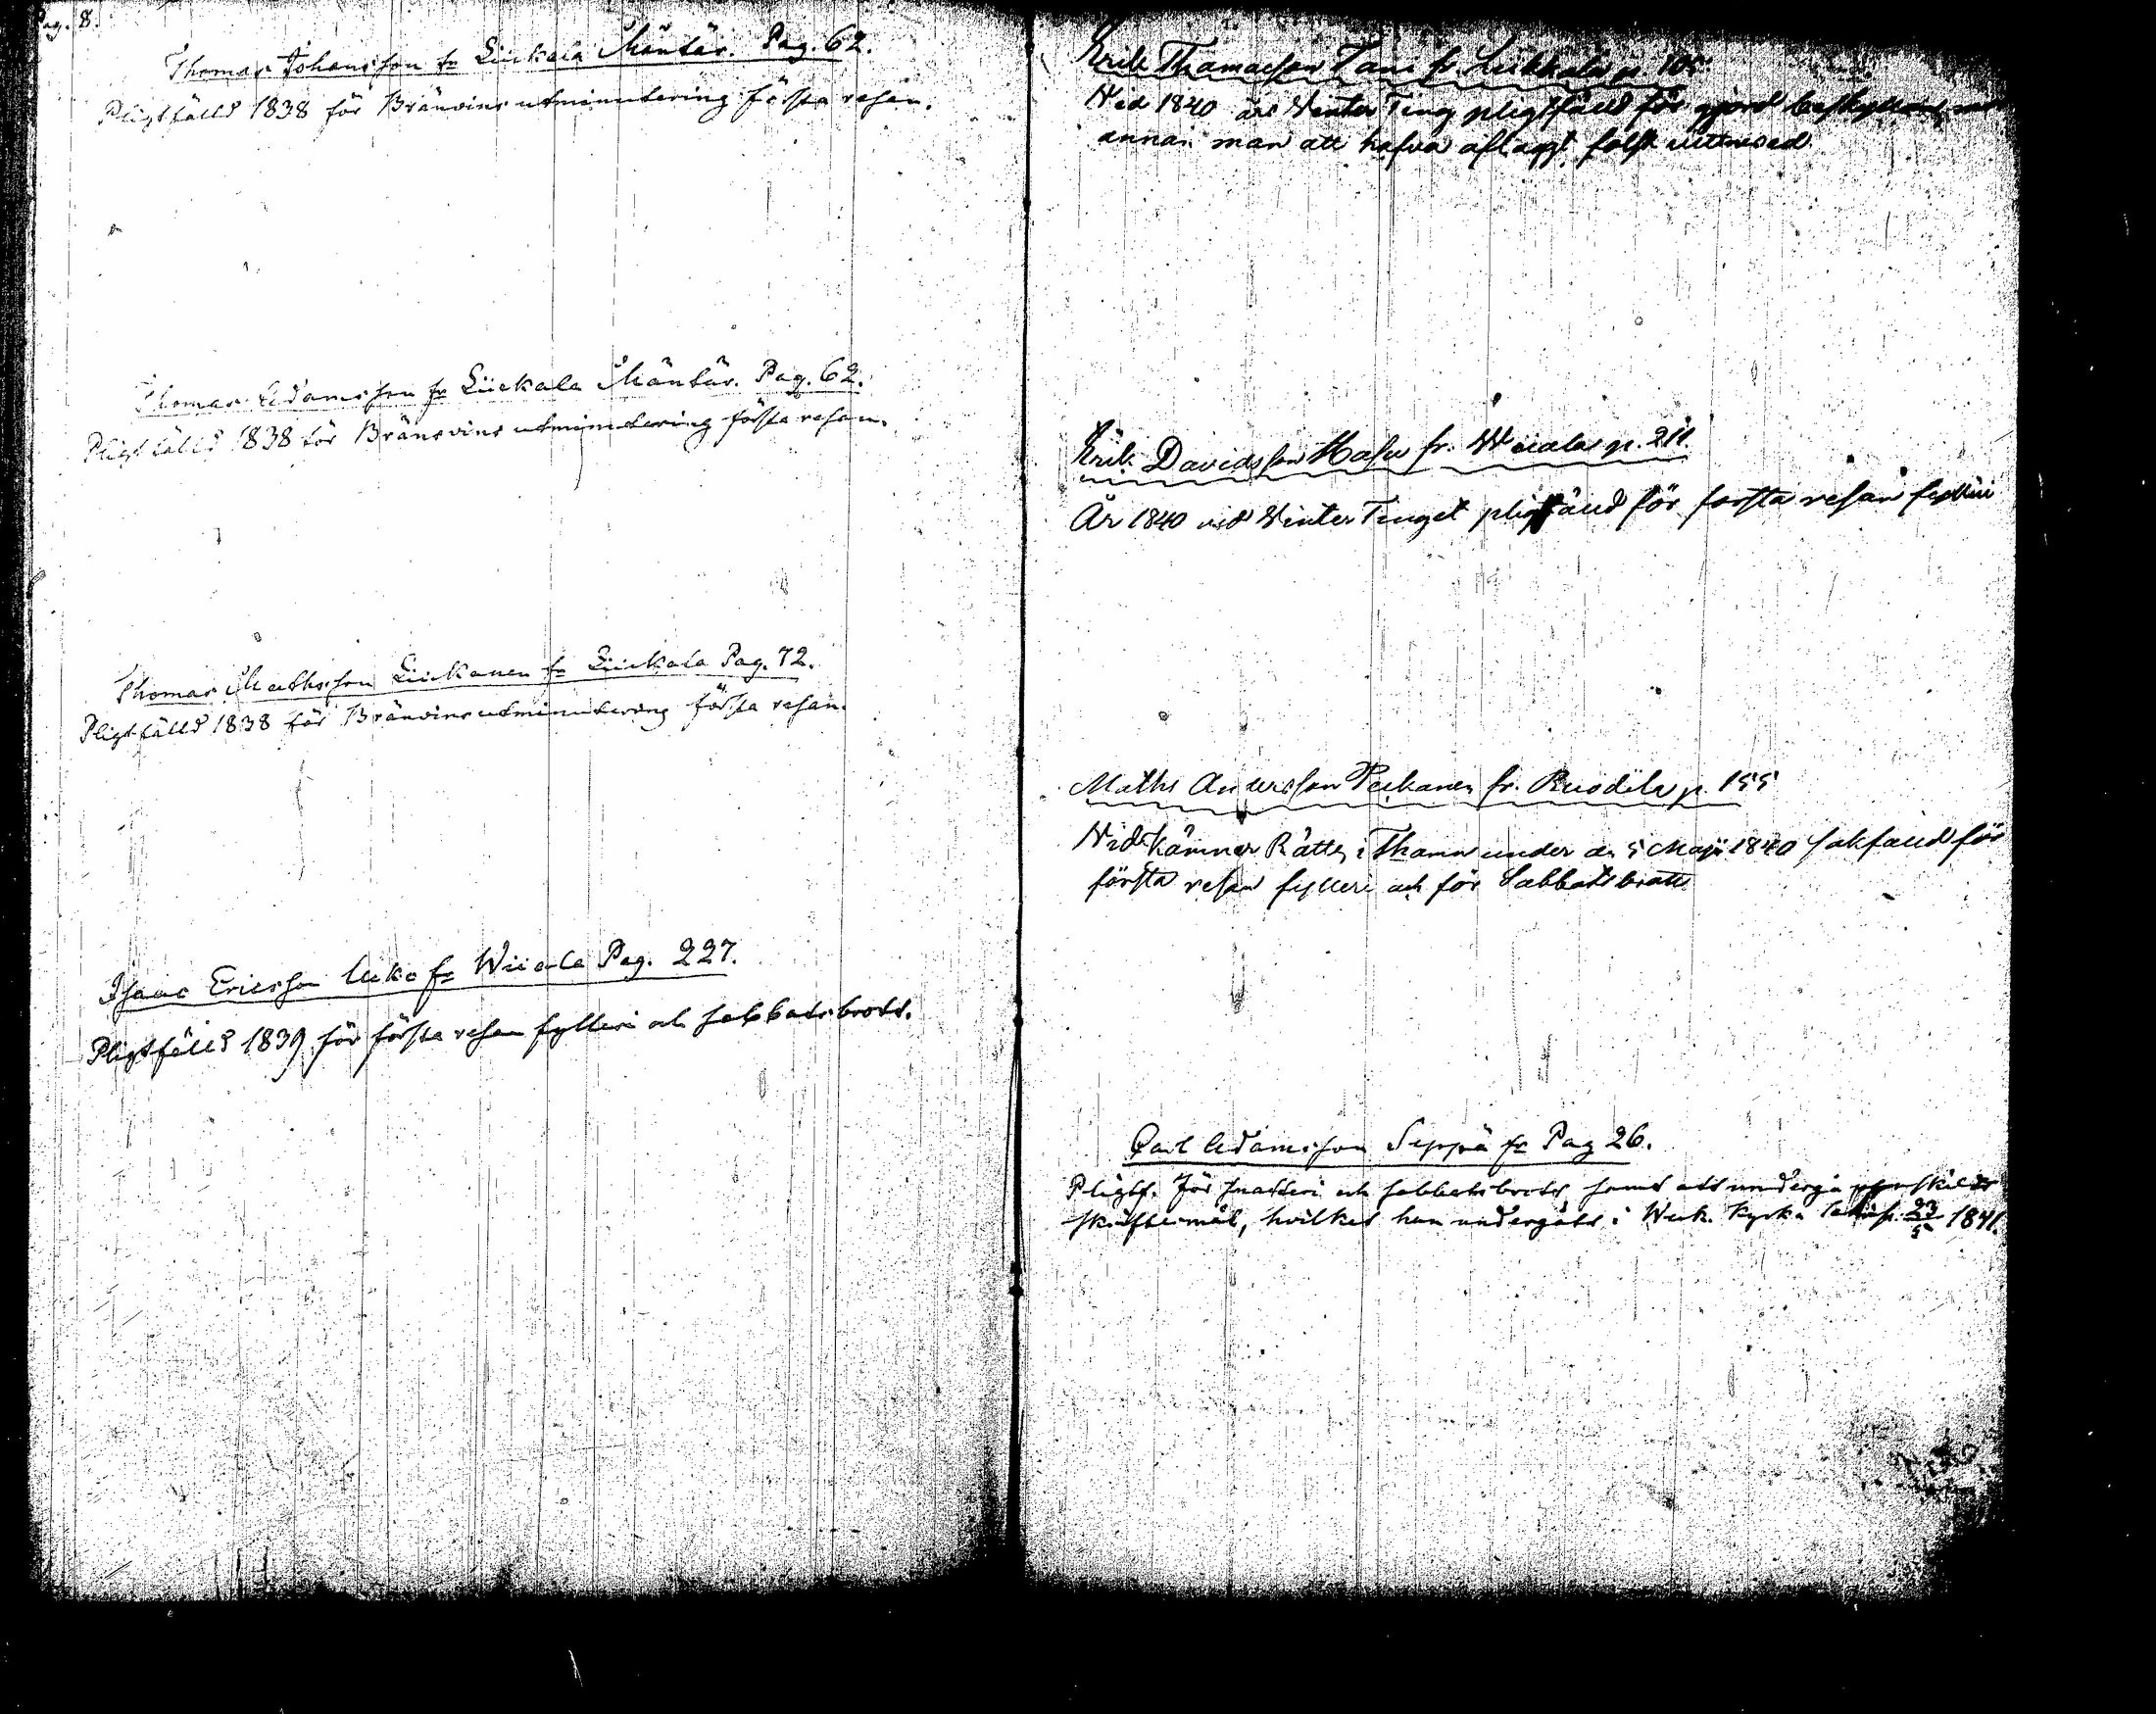 Pag. 8.
Thomas Johansson fr Liukala Mäntär. Pag. 62.
Pligtfälld 1838 för Bränvins utminutering första resan.
Thomas Adamsson fr Liickala Mäntär. Pag. 62.
Pligtfälld 1838 för Bränsvins utminutering första resan.
Thomas Mathsson Liickanen fr Liickala Pag. 72.
Pligtfälld 1838 för Bränvins utminutering första resan.
Isaac Ericsson Ucko fr Wiiala Pag. 227.
Pligtfälld 1839 för första resan fylleri och sabbatsbrott.
Erik Thomasson Tani fr. p. 105
Wid 1840 års Winter Ting pligtfälld för gjord beskyllning
annan man att hafva aflagt falsk wittnesed.
Erik Davidsson fr. Wiiala p. 211.
År 1840 vid Winter Tinget för första resan fylleri
Maths Andersson Peckanen fr. p. 155
Wid Kämner Rätten i under d. 5 Maji 1840 sakfäld för
första resan fylleri och för Sabbatsbrott
Carl Adamsson Seppä fr Pag 26.
Pligtf. för snatteri och sabbatsbrott samt att undergå
skriftermål, hvilket han undergått i Weck. Kyrka 23/5 1841.